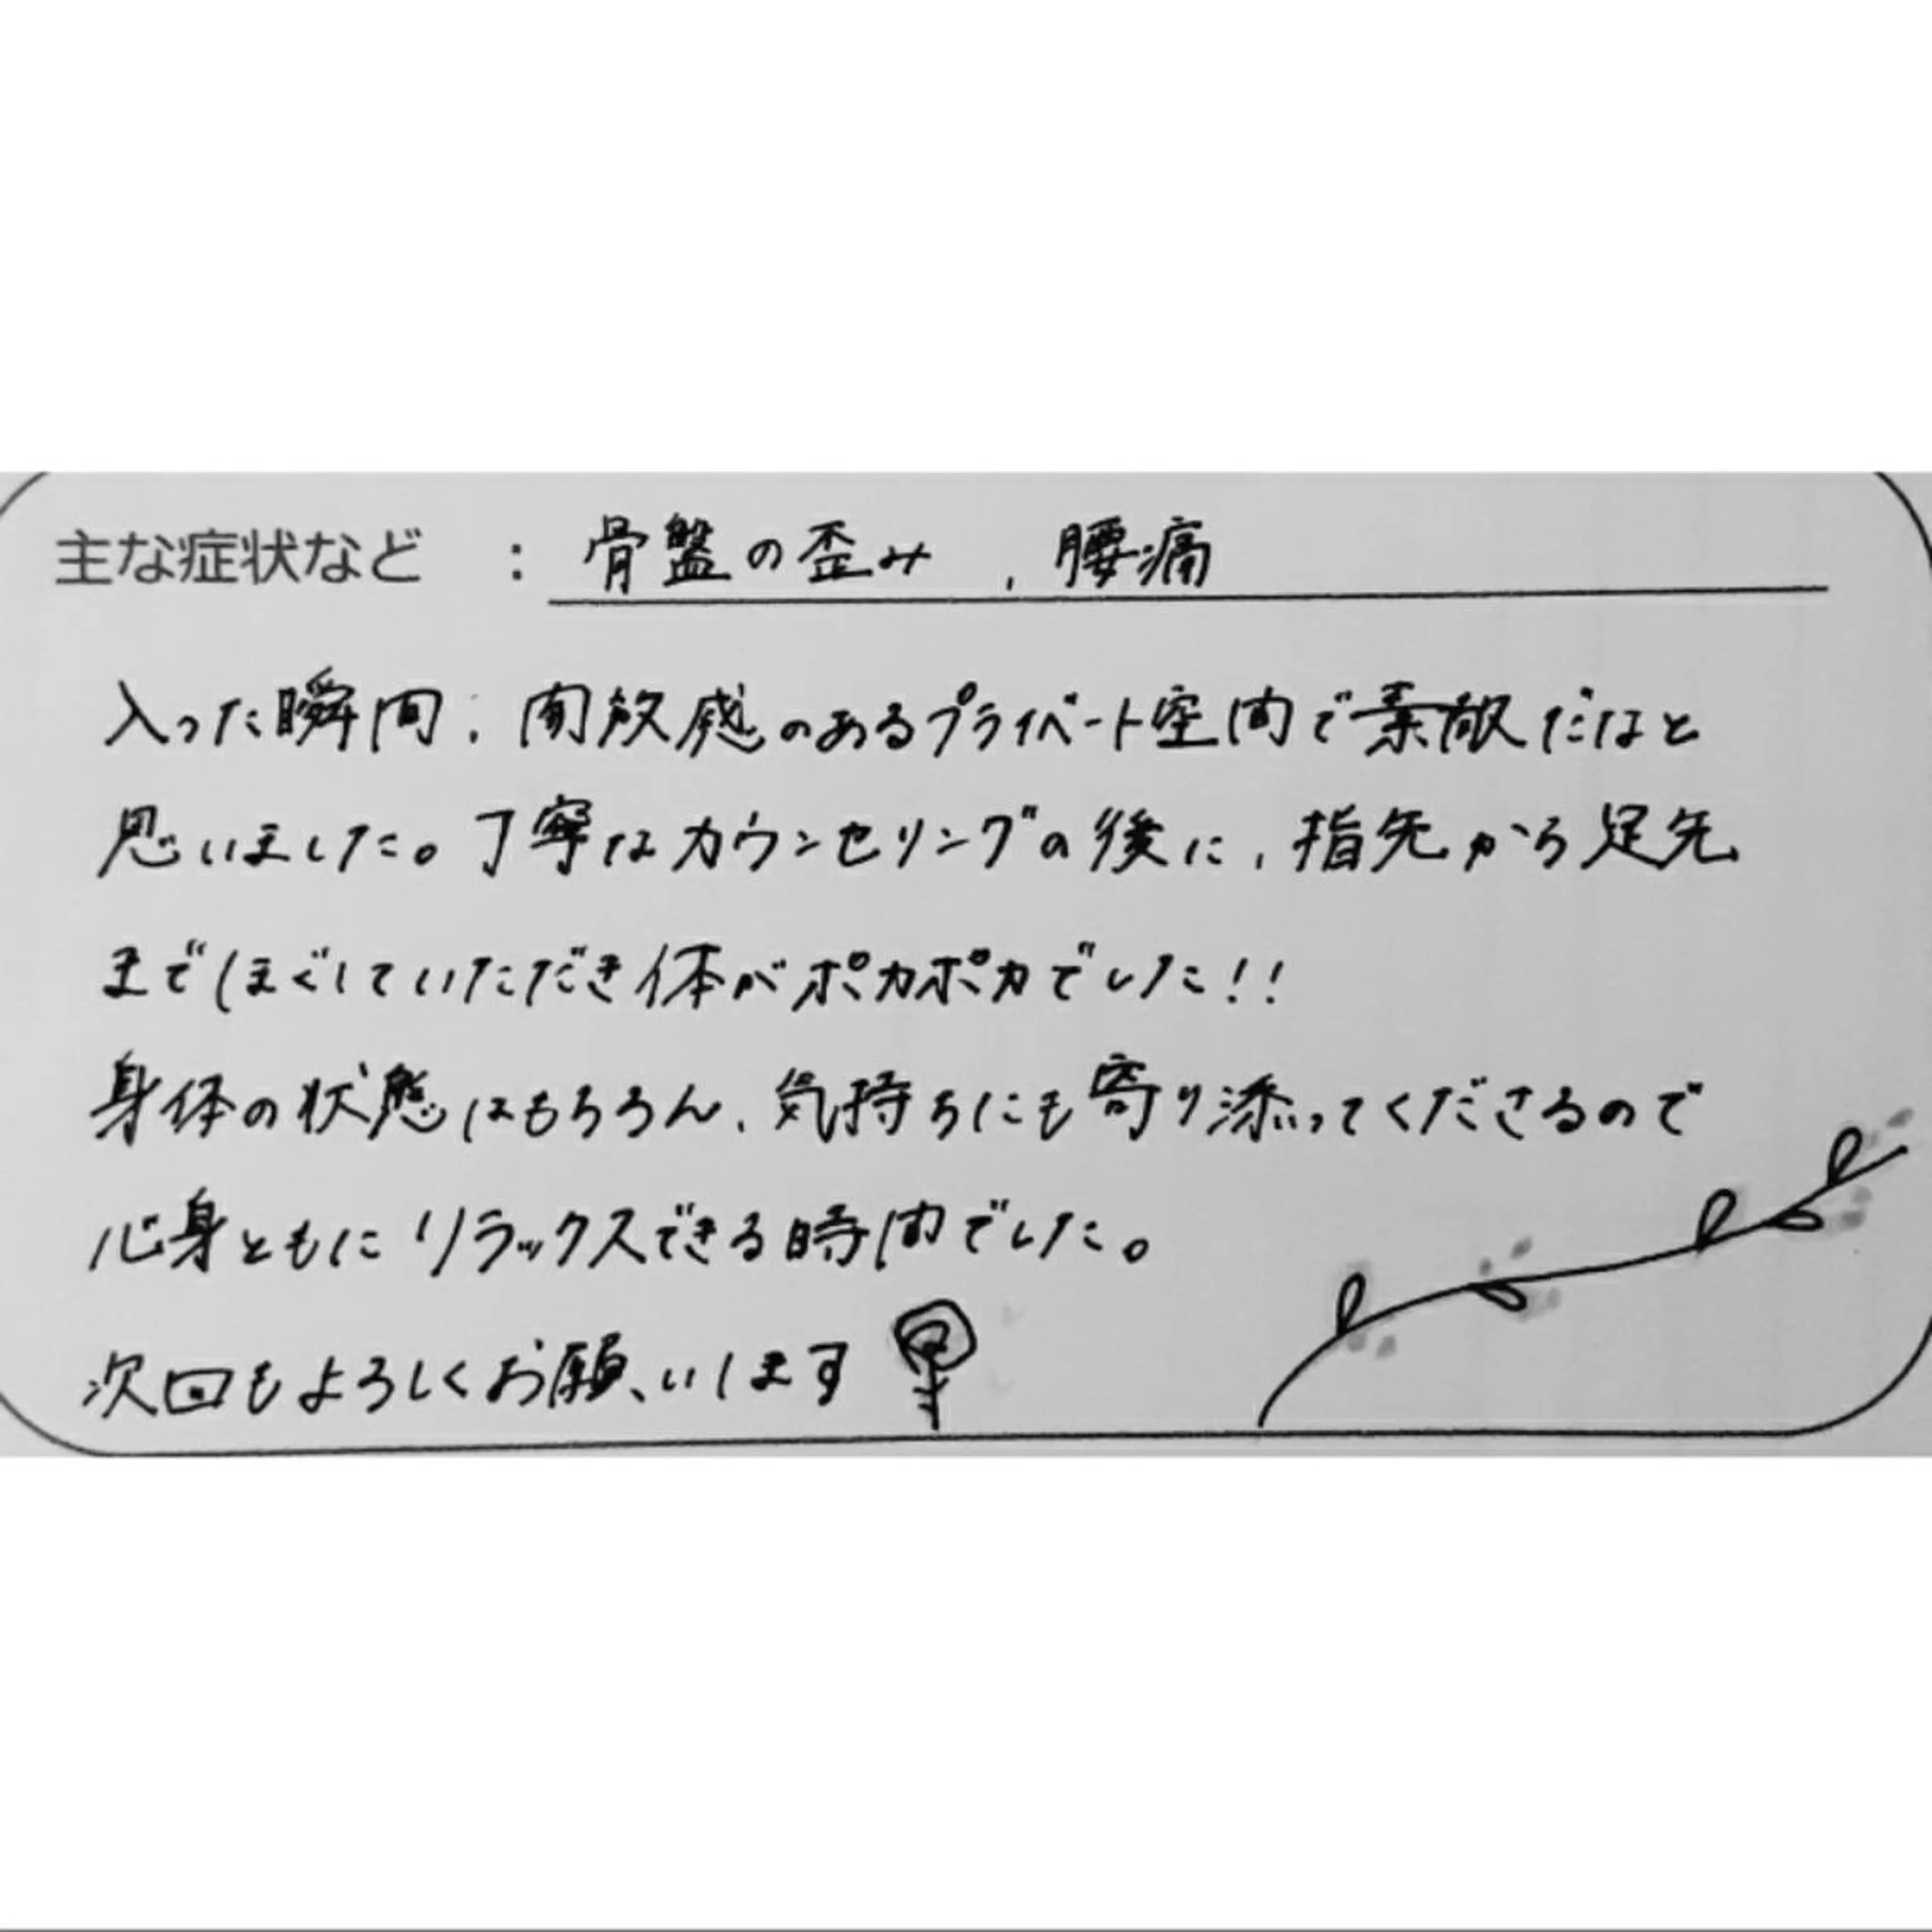 主な症状など : 骨盤の歪み、腰痛
入った瞬間、開放感のあるプライベート空間で素敵だなと
思いました。丁寧なカウンセリングの後に、指先から足先
までほぐしていただき体がポカポカでした!!
身体の状態はもちろん、気持ちにも寄り添ってくださるので
心身ともにリラックスできる時間でした。
次回もよろしくお願いします